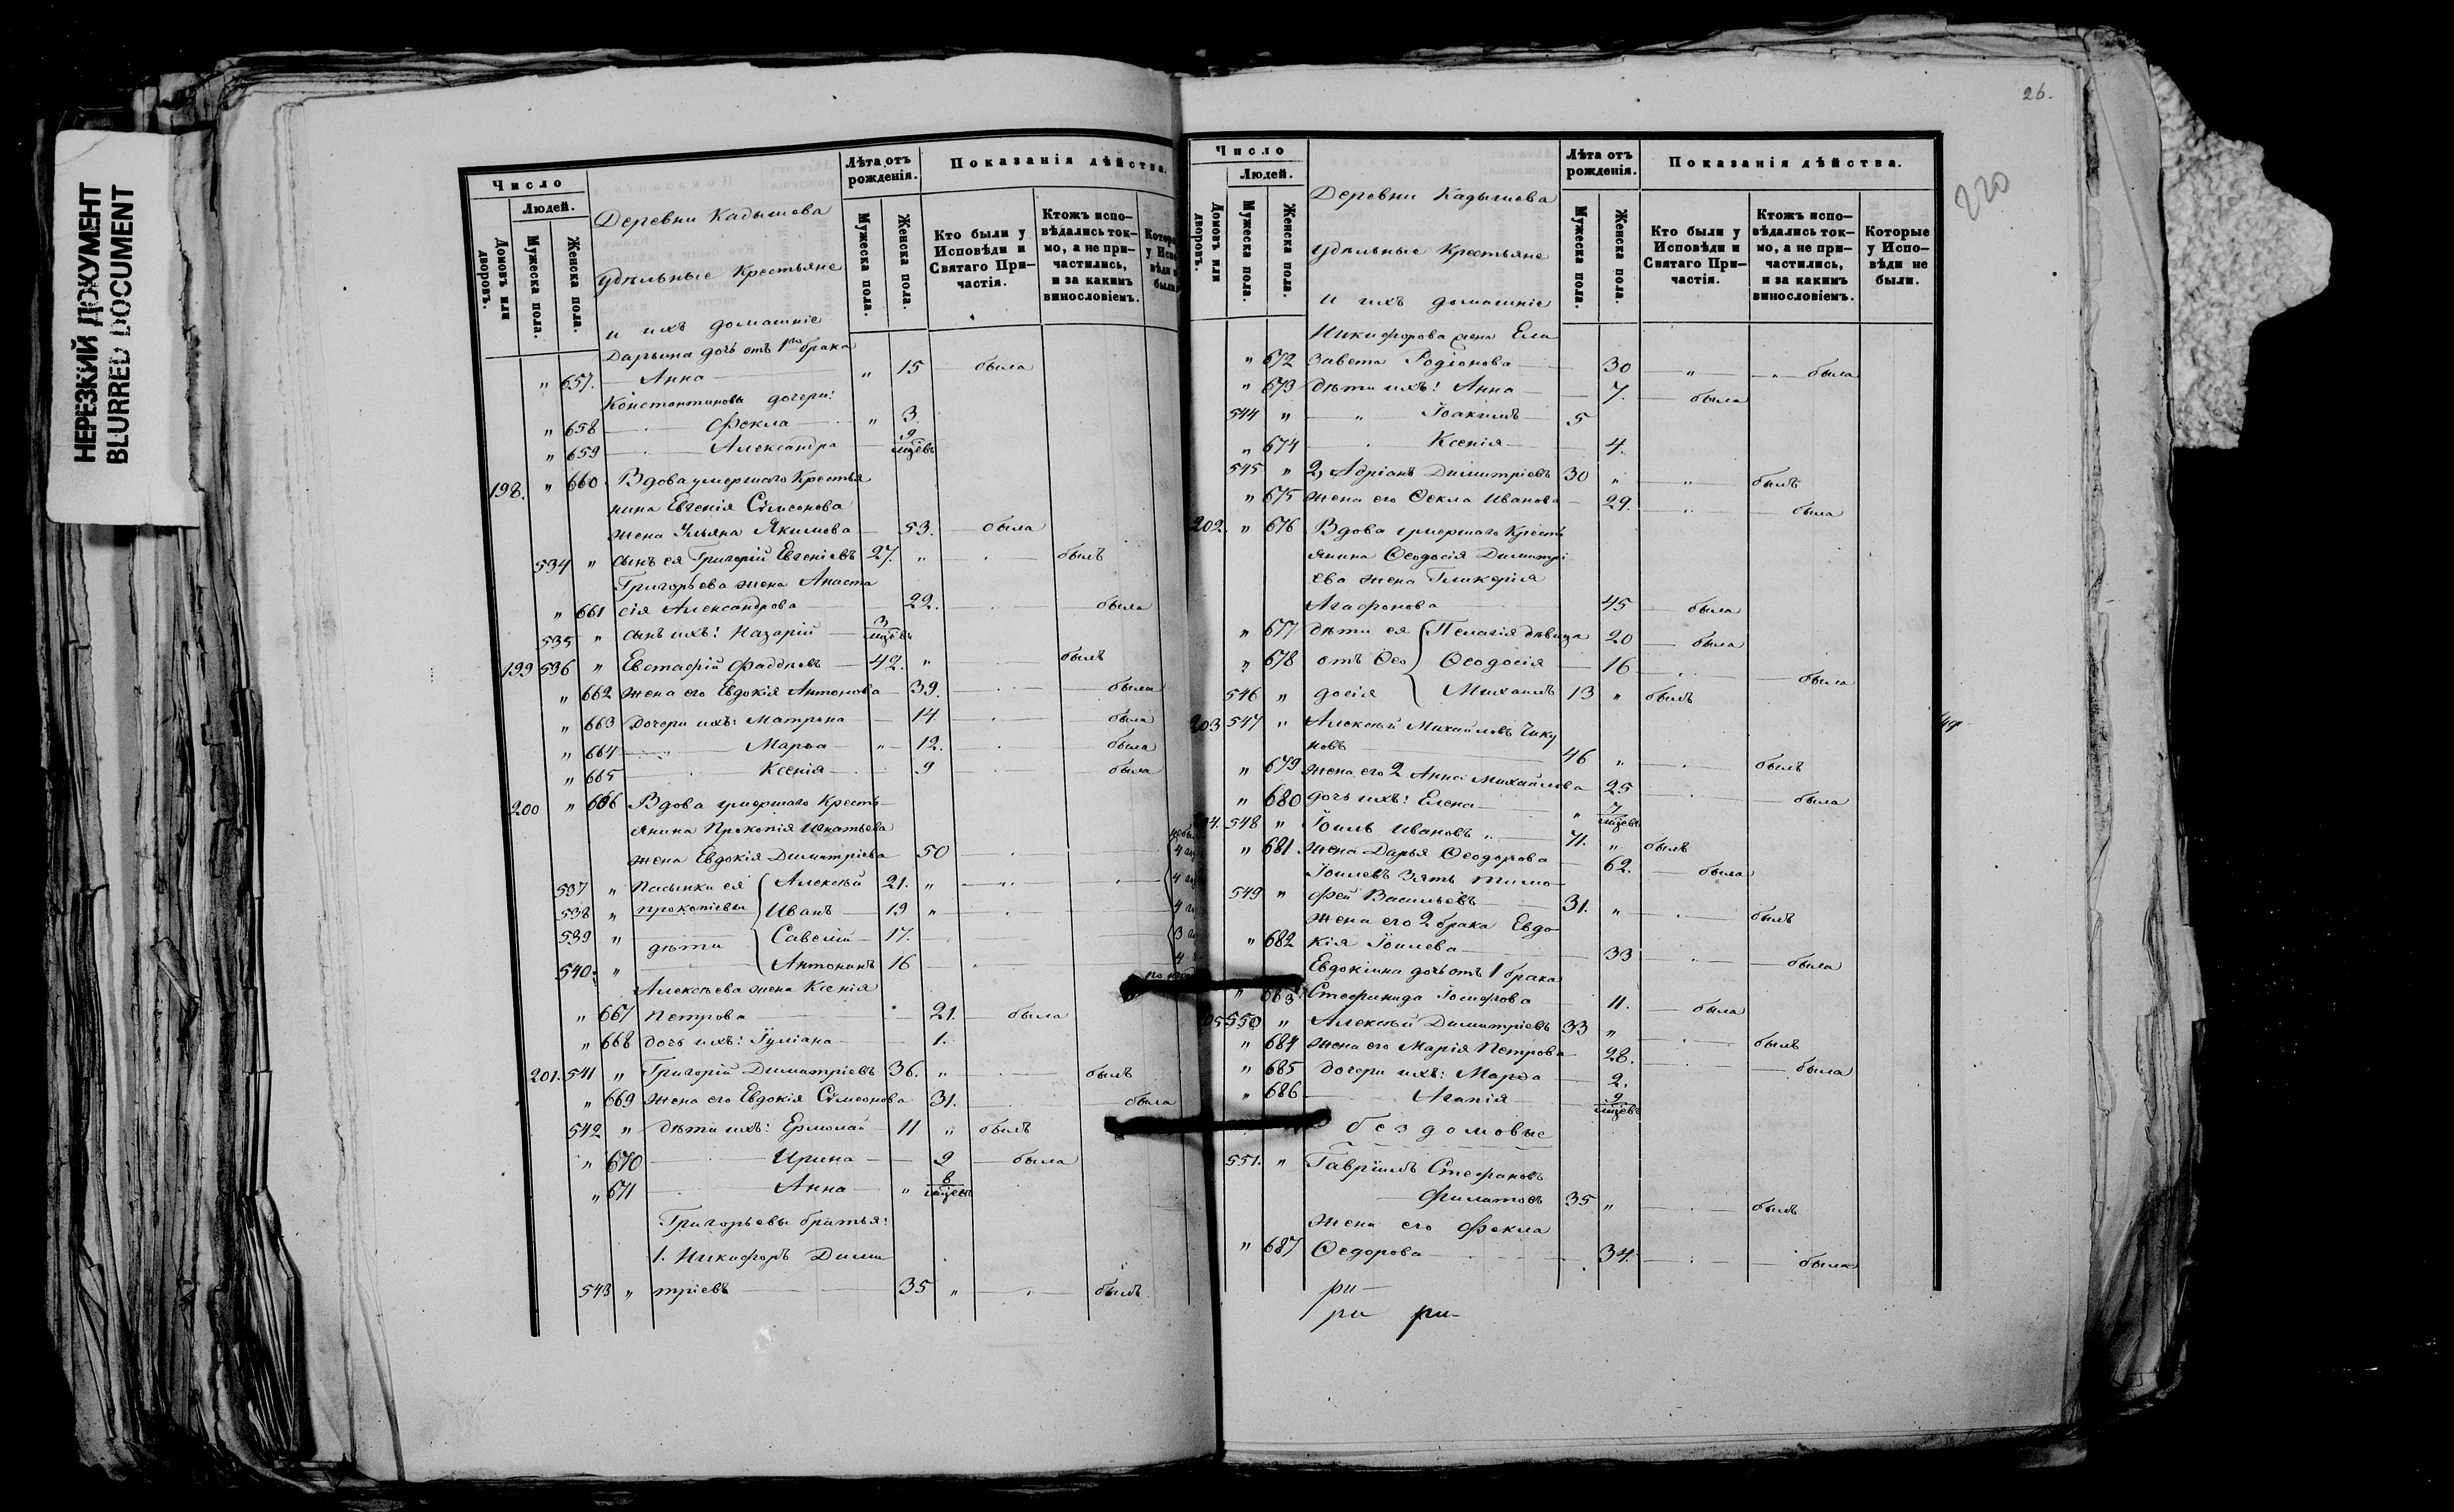 НЕРЕЗКИЙ ДОКУМЕНТ
BLURRED DOCUMENT
Число
Людей.
Домовъ или дворовъ.
Мужеска пола.
Женска пола.
Деревни Кадышева
Удѣльные Крестьяне
и ихъ домашніе
Лѣта отъ рожденія.
Мужеска пола.
Женска пола.
Показанія дѣйства.
Кто были у Исповѣди и Святаго При-
частія.
Ктожъ испо-
вѣдались ток-
мо, а не при-
частились,
и за какимъ
винословіемъ.
Дарьина дочь отъ 1го брака
" 657. Анна " 15 была
Константиновы дочери:
" 658 Фекла " 3.
" 659 Александра 9 мцевъ
198. " 660 Вдова умершаго Крестья
нина Евгенія Сѵмеонова
жена Ульяна Якимова 53. была
534 " сынъ ея Григорій Евгеніевъ 27. " былъ
Григорьева жена Анаста
" 661 сія Александрова 22. была
535 " сынъ ихъ: Назарій 3 мцевъ
199 536 " Евстафій Фаддѣевъ 42. " былъ
" 662 жена его Евдокія Антонова 39. была
" 663 дочери ихъ: Матрона 14. была
" 664 Марѳа " 12. была
" 665 Ксенія 9 была
200 " 666 Вдова умершаго Кресть-
янина Прокопія Игнатьева
жена Евдокія Димитріева 50
537 " Пасынки ея Алексѣй 21. "
538 " прокопіевы Иванъ 19 "
539 " дѣти Савелій 17.
540. " Антонинъ 16
Алексѣева жена Ксенія
" 667 Петрова 21. была
" 668 дочь ихъ: Іуліана 1.
201. 541 " Григорій Димитріевъ 36. " былъ
" 669 жена его Евдокія Сѵмеонова 31. была
542 " дѣти ихъ: Ермолай 11 " былъ
" 670 Ирина 9 была
" 671 Анна " 8 мцевъ
Григорьевы братья:
1. Никифоръ Дими
543 " тріевъ 35 " былъ
26.
220
Число
Людей.
Домовъ или дворовъ.
Мужеска пола.
Женска пола.
Деревни Кадышева
Удѣльные Крестьяне
и ихъ домашніе
Лѣта отъ рожденія.
Мужеска пола.
Женска пола.
Показанія дѣйства.
Кто были у Исповѣди и Святаго При-
частія.
Ктожъ испо-
вѣдались ток-
мо, а не при-
частились,
и за какимъ
винословіемъ.
Которые у Испо-
вѣди не были.
Никифорова жена Ели
" 672 завета Родіонова 30 " " была
" 673 дѣти ихъ: Анна 7. была
544 " " Іоакимъ 5
" 674 Ксенія 4.
545 " 2, Адріанъ Димитріевъ 30 " " былъ
" 675 жена его Ѳекла Иванова 29. была
202. " 676 Вдова умершаго Кресть
янина Ѳеодосія Димитрі
ева жена Гликерія
Агафонова 45 была
" 677 дѣти ея Пелагія дѣвица 20 была
" 678 отъ Ѳео Ѳеодосія 16 была
546 " досія Михаилъ 13 " былъ
203 547 " Алексѣй Михайловъ Чику
новъ 46 " былъ
" 679 жена его 2 Анна Михайлова 25 была
" 680 дочь ихъ: Елена " 7 мцевъ
548 " Іоиль Ивановъ 71. " былъ
" 681 жена Дарья Ѳеодорова 62. была
Іоилевъ Зять Тимо-
549 " фей Васильевъ 31. " былъ
жена его 2 брака Евдо
" 682 кія Іоилева 33 была
Евдокіина дочь отъ 1 брака
" 683 Стефанида Іосифова 11. была
550 " Алексѣй Димитріевъ 33 " былъ
" 684 жена его Марія Петрова 28. была
" 685 дочери ихъ: Марѳа 2.
" 686 Агапія 9 мцевъ
бездомовые
551. " Гавріилъ Стефановъ
Филатовъ 35 " былъ
жена его Фекла
" 687 Ѳедорова 34. была
ри
ри ри